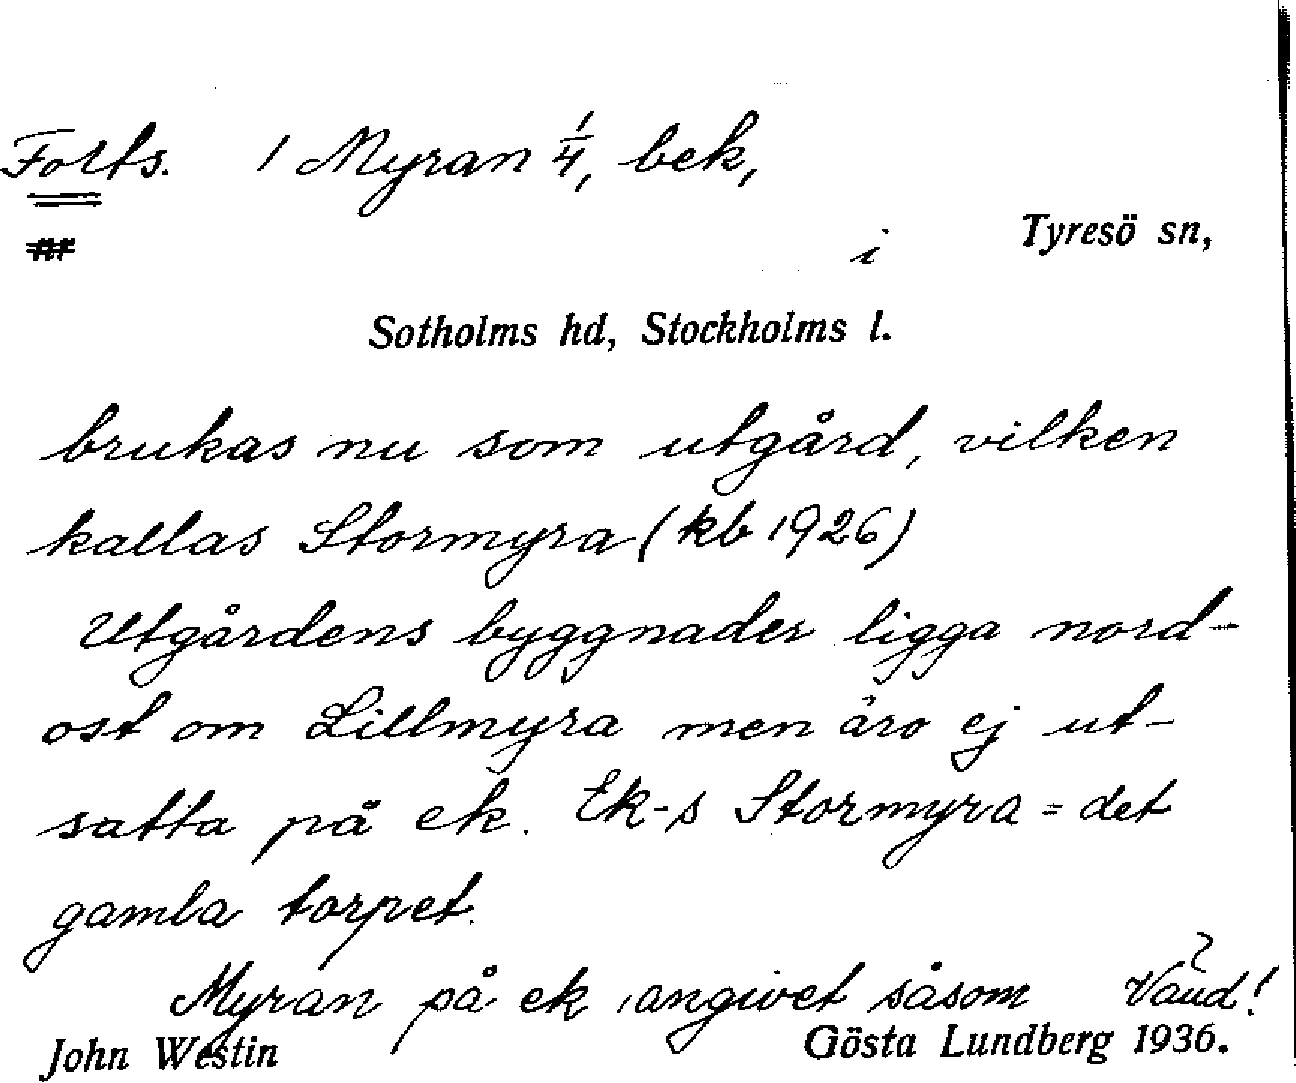 Forts. 1 Myran 1/4, bek,
i Tyresö sn,
Sotholms hd, Stockholms l.
brukas nu som utgård, vilken
kallas Stormyra (kb 1926)
Utgårdens byggnader ligga nord-
ost om Lillmyra men äro ej ut-
satta på ek. Ek-s Stormyra = det
gamla torpet.
Myran på ek angivet såsom Vänd!
John Westin Gösta Lundberg 1936.